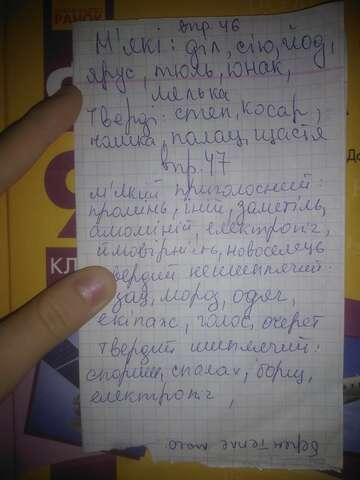 РАНОК
впр. 46
М'які: діл, сію, йод,
ярус, тюль, юнак,
лялька
Тверді: степ, косар,
палац, щастя
впр. 47
м'який приголосний:
іній, заметіль,
алюміній, електро
ймовірність, новоселець
твердий нешиплячий:
мороз, одяг,
екіпаж, голос, очерет
твердий шиплячий:
спориш, спалах, борщ,
електро
КЛ